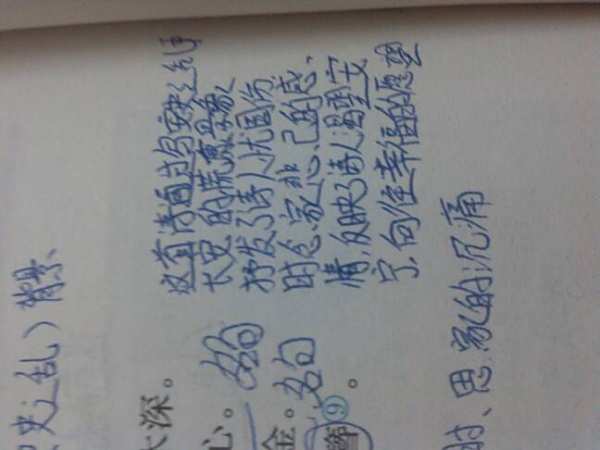 史之乱）背景、
深。
心。名句
金。名句
簪⑨。
这首诗通过写安史之乱
长安的荒凉景象
抒发了诗人忧国伤
时念家悲己的感
情,反映了诗人渴望安
宁、向往幸福的愿望
时、思家的沉痛